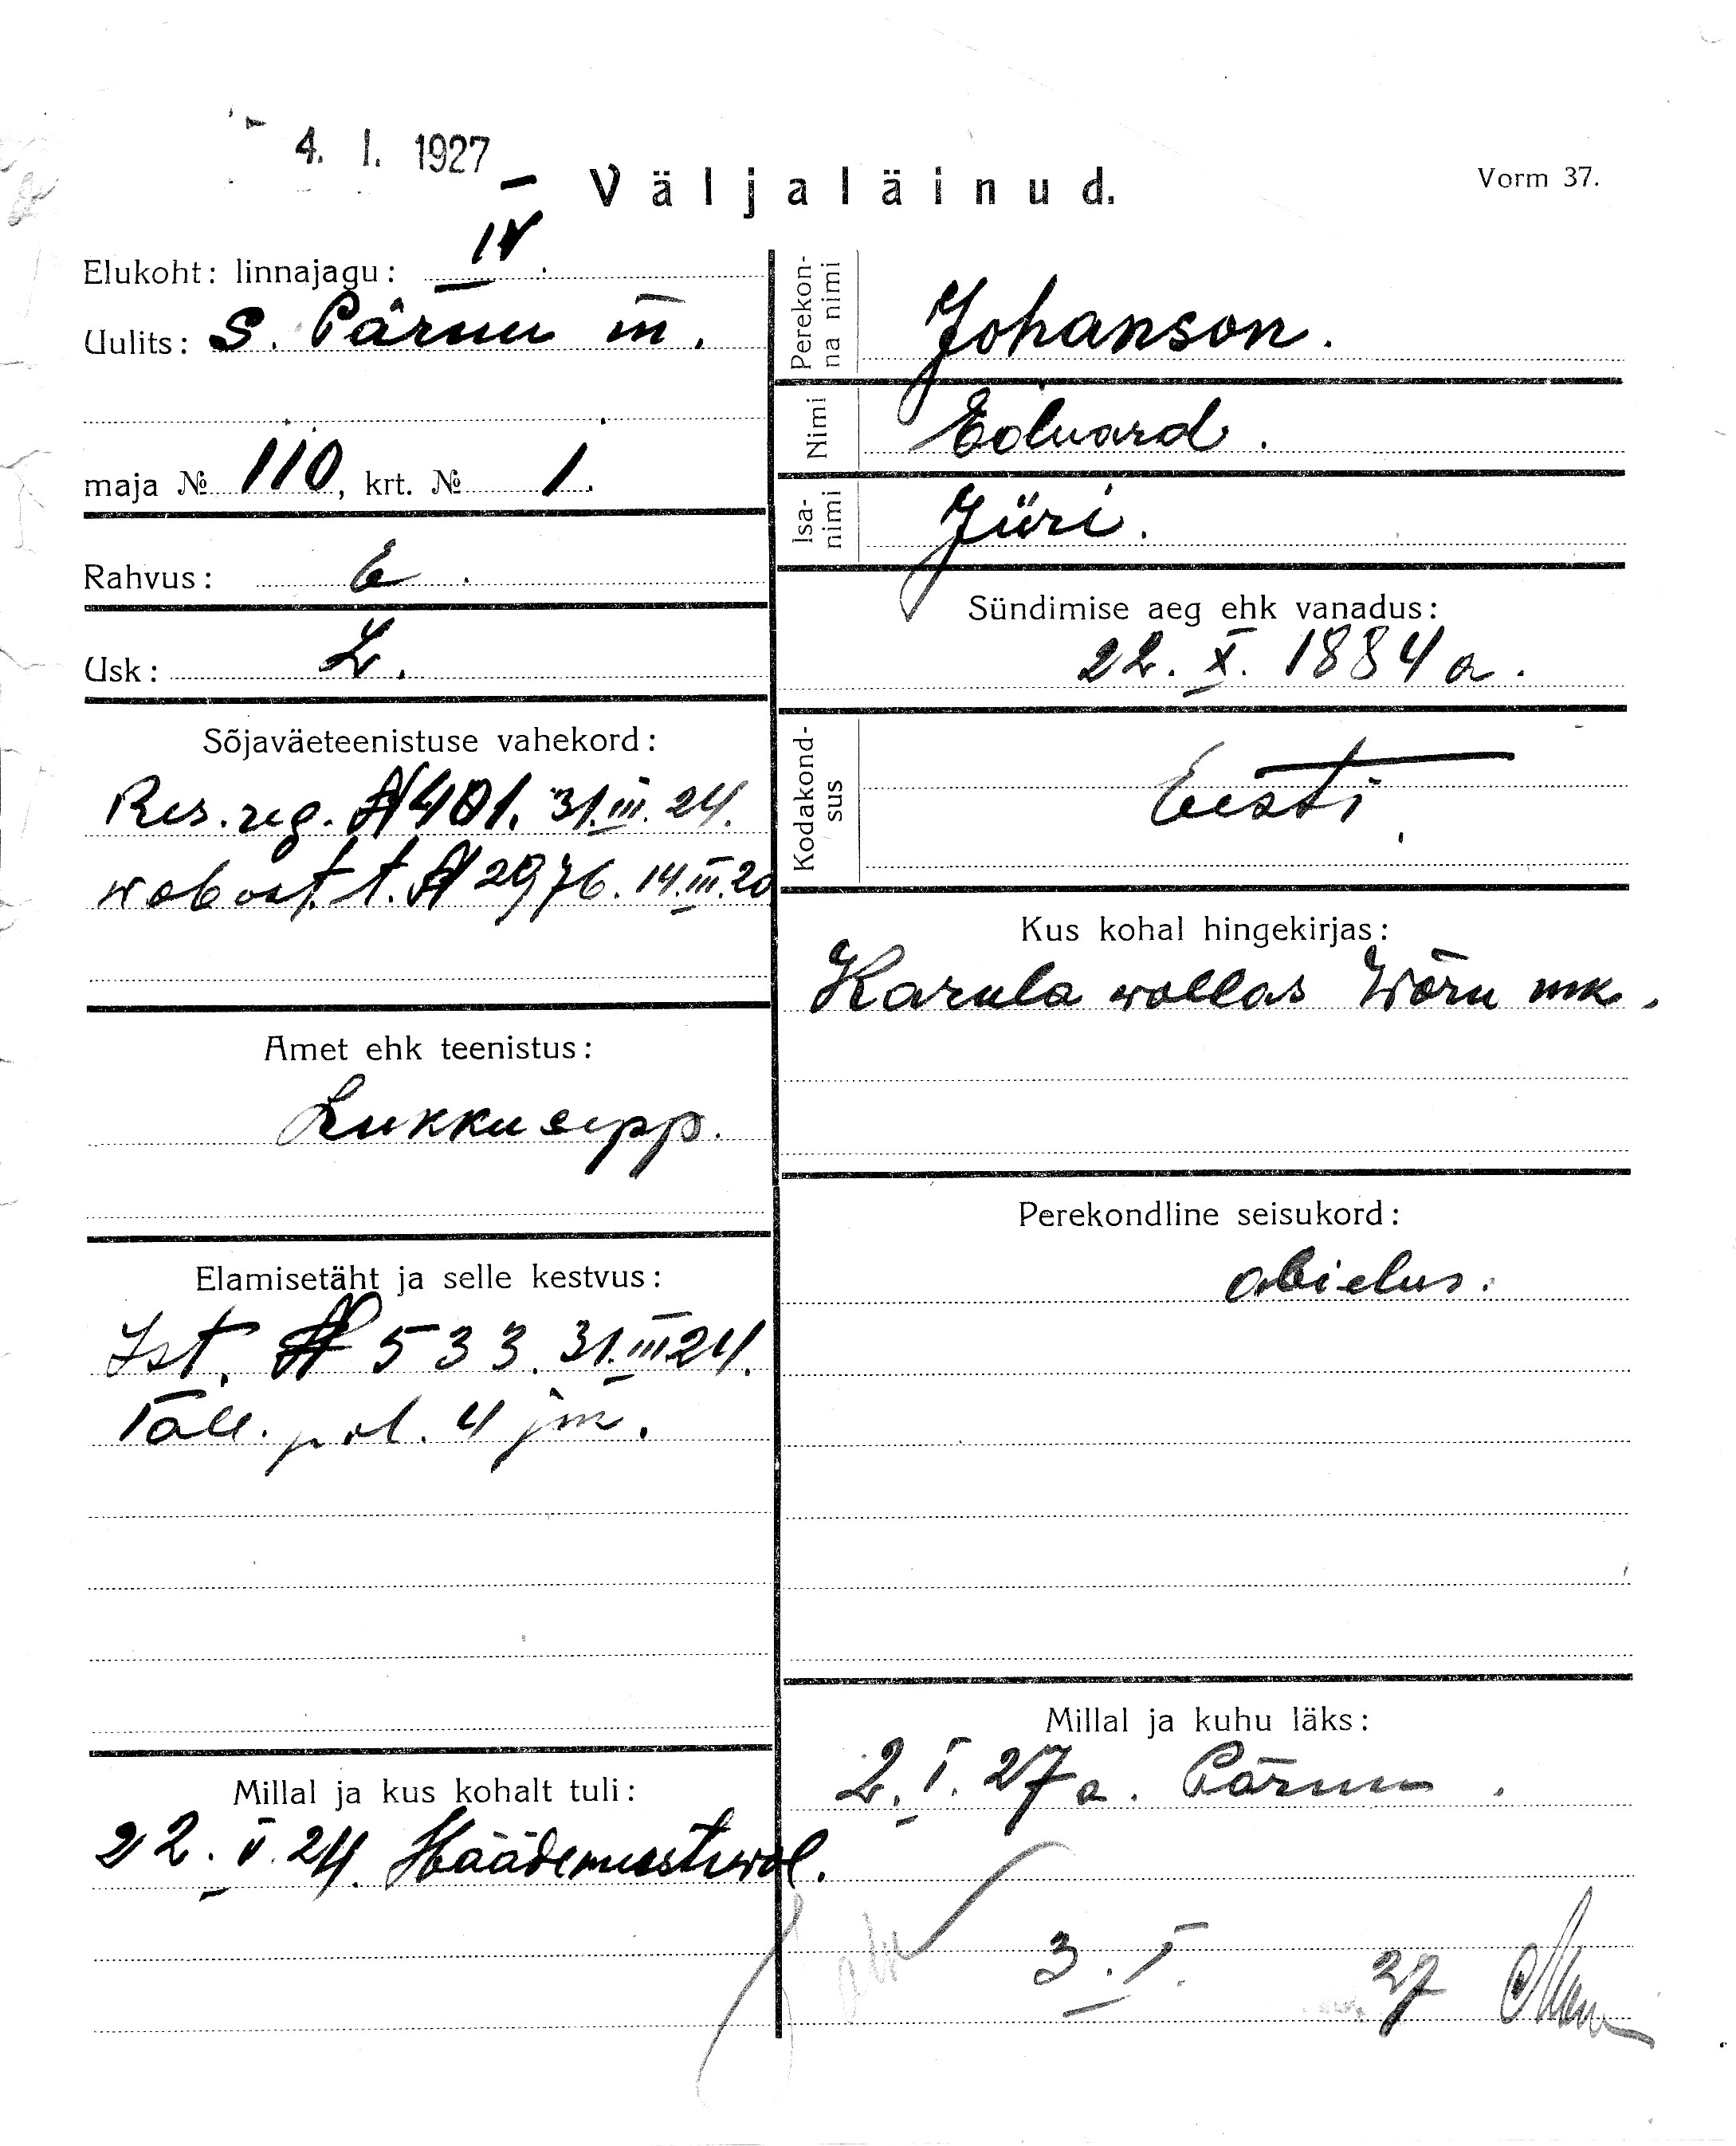 4. I. 1927
Väljaläinud.
Vorm 37.
Elukoht: linnajagu: IV
Uulits: S. Pärnu m.
maja № 110, krt. № 1.
Rahvus: E.
Usk: L.
Sõjaväeteenistuse vahekord:
Res. reg. № 401. 31.III.24.
wabast. t. № 2976. 14.III.20
Amet ehk teenistus:
Lukkusepp.
Elamisetäht ja selle kestvus:
Ist. № 533. 31.III 24.
Tall. pol. 4 jm.
Millal ja kus kohalt tuli:
22. V. 24. Häädemeeste wal.
Perekonna nimi
Johanson.
Nimi
Eduard.
Isanimi
Jüri.
Sündimise aeg ehk vanadus:
22. X. 1884 a.
Kodakondsus
Eesti.
Kus kohal hingekirjas:
Karula wallas Wõru mk.
Perekondline seisukord:
abielus.
Millal ja kuhu läks:
2. I. 27 a. Pärnu.
3. I. 27